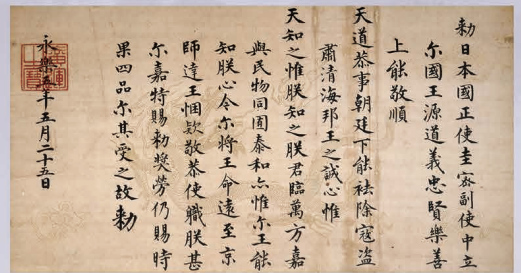 勑日本國正使圭密副使中立
尔國王源道義忠賢樂善
上能敬順
天道恭事朝廷下能袪除寇盗
肅清海邦王之誠心惟
天知之惟朕知之朕君臨萬方嘉
與民物同囿泰和亦惟尔王能
知朕心令尔將王命遠至京
師達王悃欵敬恭使職朕甚
尔嘉特賜勑奬勞仍賜時
果四品尔其受之故勑
永樂五年五月二十五日